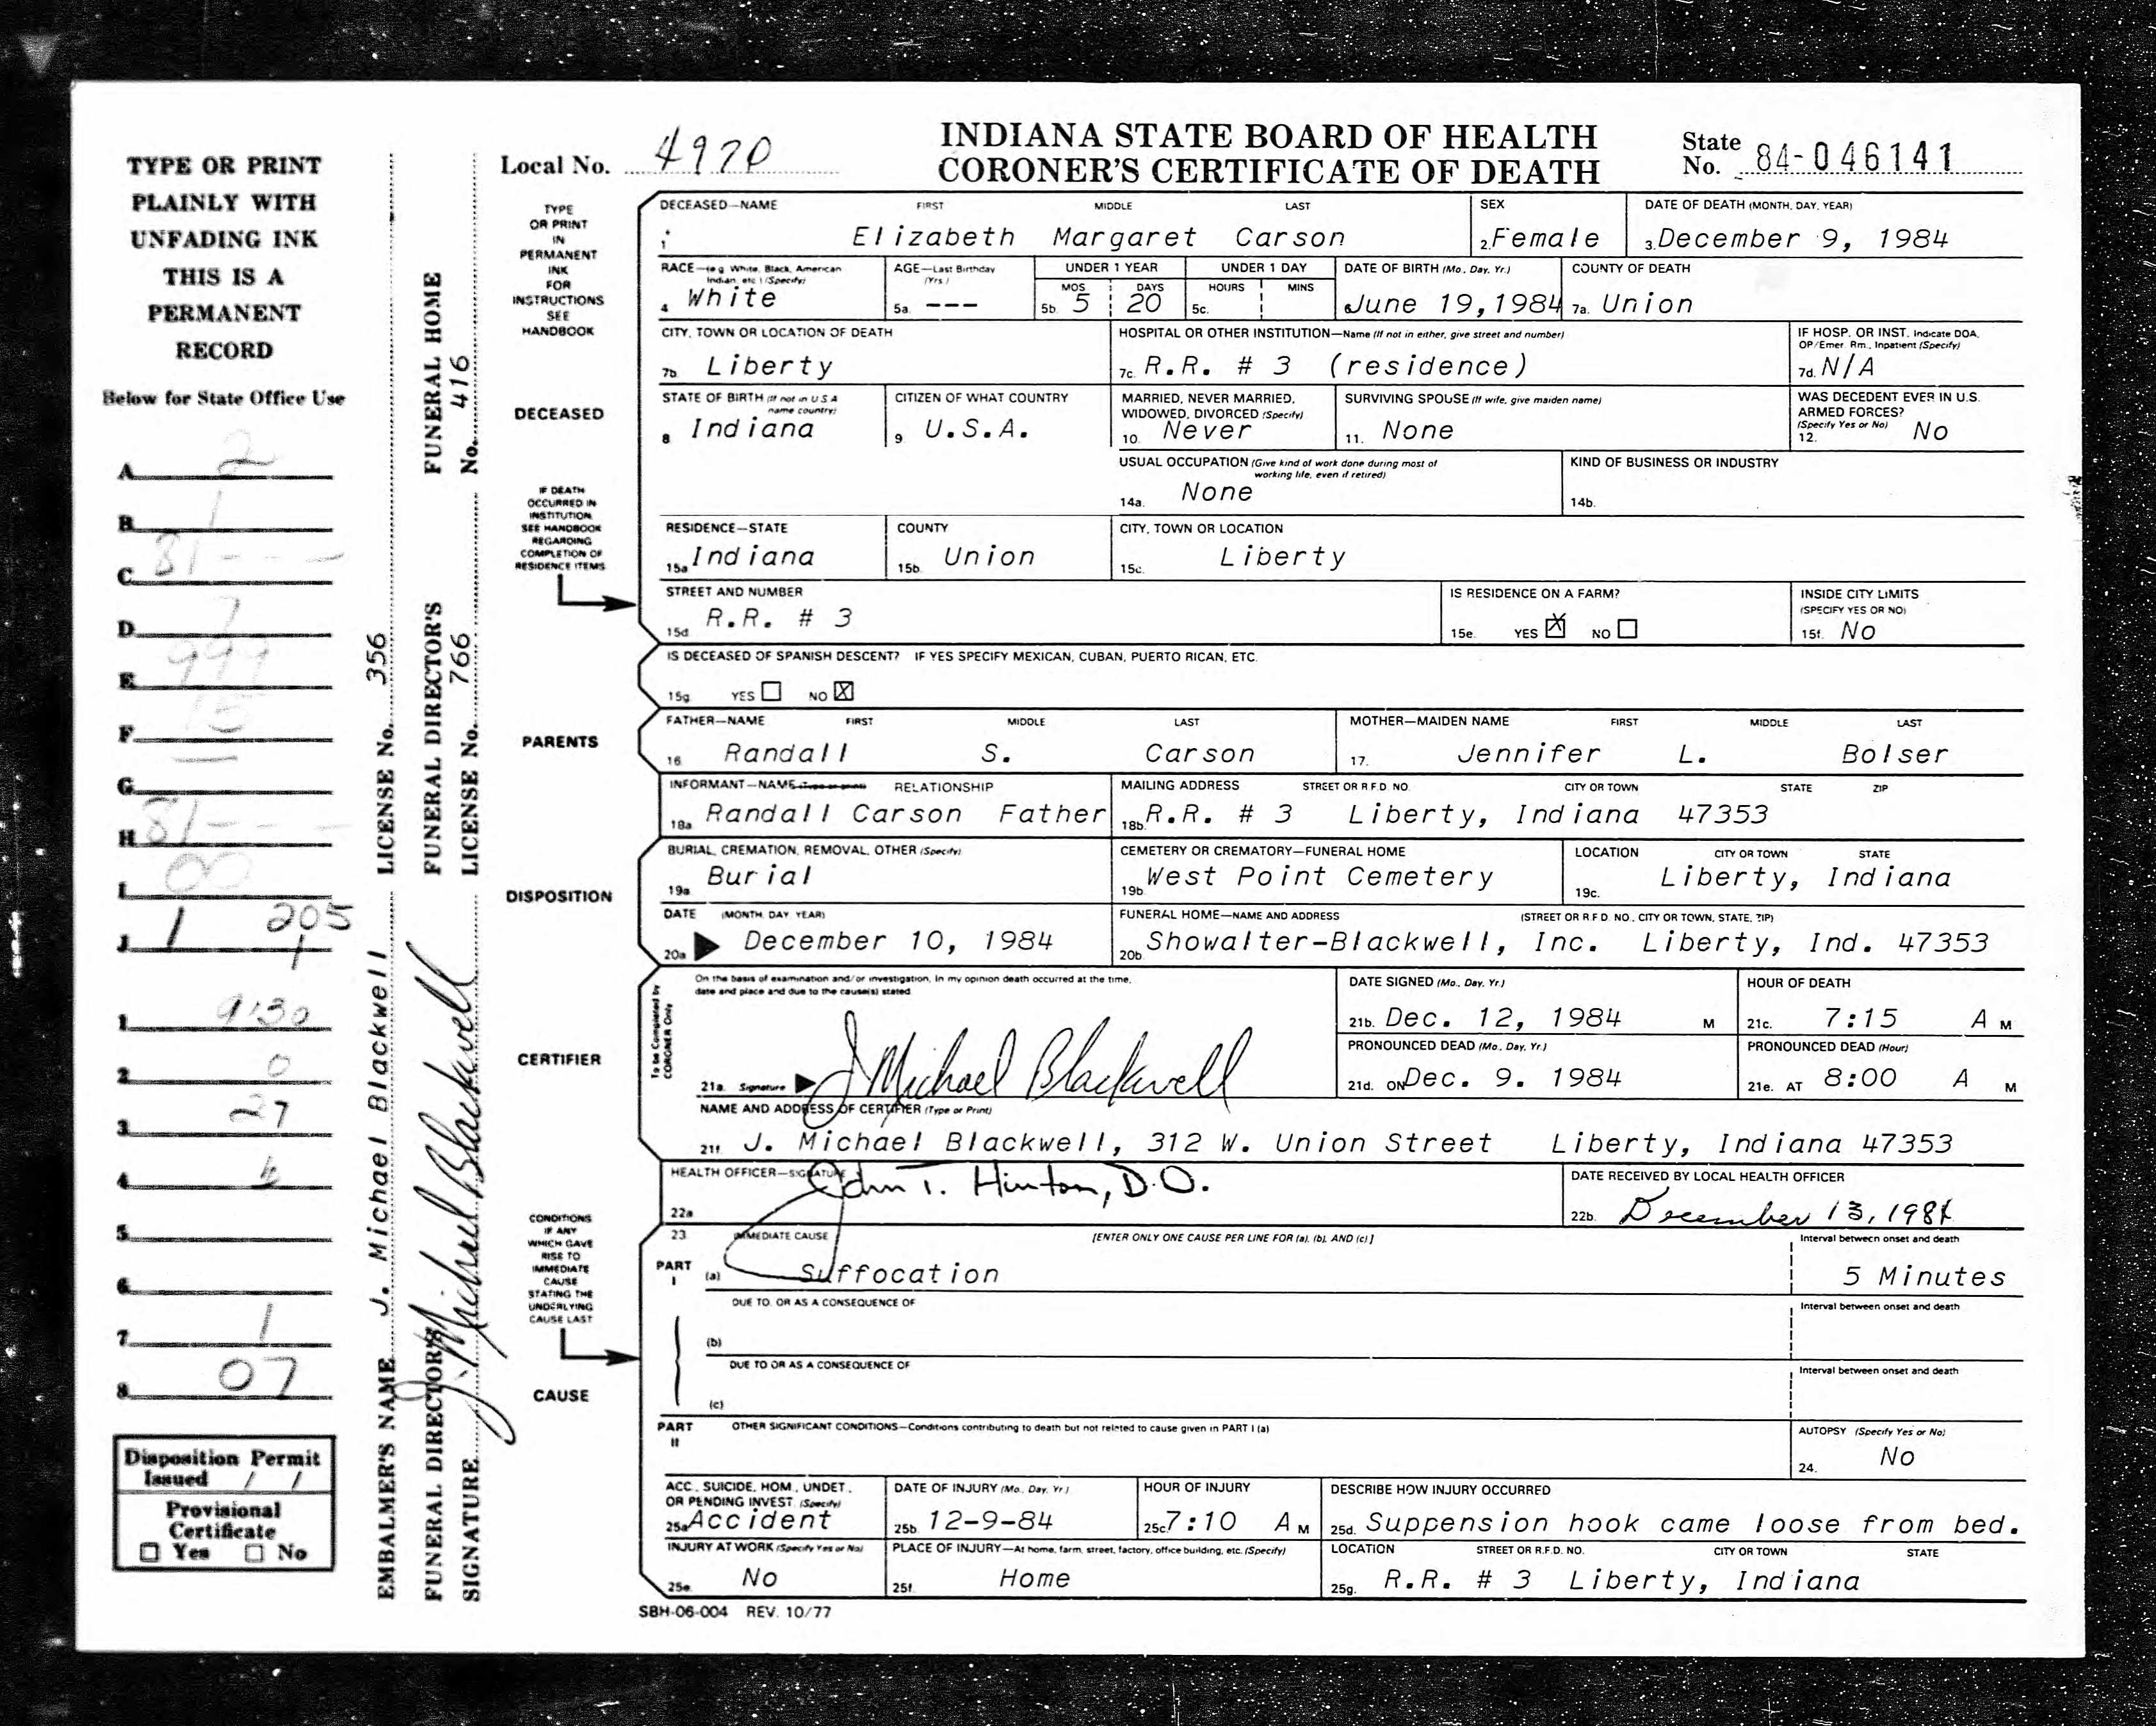 INDIANA STATE BOARD OF HEALTH
CORONER'S CERTIFICATE OF DEATH
Local No. 4970
State No. 84-046141
TYPE OR PRINT
PLAINLY WITH
UNFADING INK
THIS IS A
PERMANENT
RECORD
Below for State Office Use
A 2
B 1
C 81 - - -
D 7
E 999
F
G
H 81 - - -
I 00
J 1 205
1
1 9130
2 0
3 27
4
5
6
7 1
8 07
Disposition Permit
Issued / /
Provisional
Certificate
Yes No
EMBALMER'S NAME J. Michael Blackwell LICENSE No. 356
FUNERAL DIRECTOR'S SIGNATURE J. Michael Blackwell
FUNERAL DIRECTOR'S LICENSE No. 766
FUNERAL HOME No. 416
TYPE
OR PRINT
IN
PERMANENT
INK
FOR
INSTRUCTIONS
SEE
HANDBOOK
DECEASED
IF DEATH
OCCURRED IN
INSTITUTION
SEE HANDBOOK
REGARDING
COMPLETION OF
RESIDENCE ITEMS
DECEASED—NAME FIRST MIDDLE LAST
1 Elizabeth Margaret Carson
SEX
2. Female
DATE OF DEATH (MONTH, DAY, YEAR)
3. December 9, 1984
RACE—(e.g. White, Black, American Indian, etc.) (Specify)
4 White
AGE—Last Birthday (Yrs.)
5a. ---
UNDER 1 YEAR
MOS DAYS
5b. 5 20
UNDER 1 DAY
HOURS MINS
5c.
DATE OF BIRTH (Mo., Day, Yr.)
6 June 19,1984
COUNTY OF DEATH
7a. Union
CITY, TOWN OR LOCATION OF DEATH
7b. Liberty
HOSPITAL OR OTHER INSTITUTION—Name (If not in either, give street and number)
7c. R.R. # 3 (residence)
IF HOSP. OR INST. Indicate DOA, OP/Emer. Rm., Inpatient (Specify)
7d. N/A
STATE OF BIRTH (If not in U S A name country)
8 Indiana
CITIZEN OF WHAT COUNTRY
9 U.S.A.
MARRIED, NEVER MARRIED, WIDOWED, DIVORCED (Specify)
10. Never
SURVIVING SPOUSE (If wife, give maiden name)
11. None
WAS DECEDENT EVER IN U.S. ARMED FORCES? (Specify Yes or No)
12. No
USUAL OCCUPATION (Give kind of work done during most of working life, even if retired)
14a. None
KIND OF BUSINESS OR INDUSTRY
14b.
RESIDENCE—STATE
15a Indiana
COUNTY
15b. Union
CITY, TOWN OR LOCATION
15c. Liberty
STREET AND NUMBER
15d R.R. # 3
IS RESIDENCE ON A FARM?
15e. YES X NO
INSIDE CITY LIMITS (SPECIFY YES OR NO)
15f. No
IS DECEASED OF SPANISH DESCENT? IF YES SPECIFY MEXICAN, CUBAN, PUERTO RICAN, ETC.
15g YES NO X
PARENTS
FATHER—NAME FIRST MIDDLE LAST
16 Randall S. Carson
MOTHER—MAIDEN NAME FIRST MIDDLE LAST
17. Jennifer L. Bolser
INFORMANT—NAME (Type or print) RELATIONSHIP
18a Randall Carson Father
MAILING ADDRESS STREET OR R F D NO. CITY OR TOWN STATE ZIP
18b. R.R. # 3 Liberty, Indiana 47353
DISPOSITION
BURIAL, CREMATION, REMOVAL, OTHER (Specify)
19a Burial
CEMETERY OR CREMATORY—FUNERAL HOME
19b West Point Cemetery
LOCATION CITY OR TOWN STATE
19c. Liberty, Indiana
DATE (MONTH, DAY, YEAR)
20a December 10, 1984
FUNERAL HOME—NAME AND ADDRESS (STREET OR R F D NO., CITY OR TOWN, STATE, ZIP)
20b. Showalter-Blackwell, Inc. Liberty, Ind. 47353
CERTIFIER
To be Completed by CORONER Only
On the basis of examination and/or investigation, in my opinion death occurred at the time,
date and place and due to the cause(s) stated
21a. Signature J Michael Blackwell
DATE SIGNED (Mo., Day, Yr.)
21b. Dec. 12, 1984 M
HOUR OF DEATH
21c. 7:15 A M
PRONOUNCED DEAD (Mo., Day, Yr.)
21d. ON Dec. 9. 1984
PRONOUNCED DEAD (Hour)
21e. AT 8:00 A M
NAME AND ADDRESS OF CERTIFIER (Type or Print)
21f. J. Michael Blackwell, 312 W. Union Street Liberty, Indiana 47353
HEALTH OFFICER—SIGNATURE
22a John T. Hinton, D.O.
DATE RECEIVED BY LOCAL HEALTH OFFICER
22b. December 13, 1984
CONDITIONS
IF ANY
WHICH GAVE
RISE TO
IMMEDIATE
CAUSE
STATING THE
UNDERLYING
CAUSE LAST
CAUSE
23 IMMEDIATE CAUSE [ENTER ONLY ONE CAUSE PER LINE FOR (a), (b), AND (c)]
PART I (a) Suffocation
Interval between onset and death
5 Minutes
DUE TO, OR AS A CONSEQUENCE OF
Interval between onset and death
(b)
DUE TO OR AS A CONSEQUENCE OF
Interval between onset and death
(c)
PART II OTHER SIGNIFICANT CONDITIONS—Conditions contributing to death but not related to cause given in PART I (a)
AUTOPSY (Specify Yes or No)
24. No
ACC., SUICIDE, HOM., UNDET., OR PENDING INVEST. (Specify)
25a Accident
DATE OF INJURY (Mo., Day, Yr.)
25b. 12-9-84
HOUR OF INJURY
25c. 7:10 A M
DESCRIBE HOW INJURY OCCURRED
25d. Suppension hook came loose from bed.
INJURY AT WORK (Specify Yes or No)
25e. No
PLACE OF INJURY—At home, farm, street, factory, office building, etc. (Specify)
25f. Home
LOCATION STREET OR R.F.D. NO. CITY OR TOWN STATE
25g. R.R. # 3 Liberty, Indiana
SBH-06-004 REV. 10/77